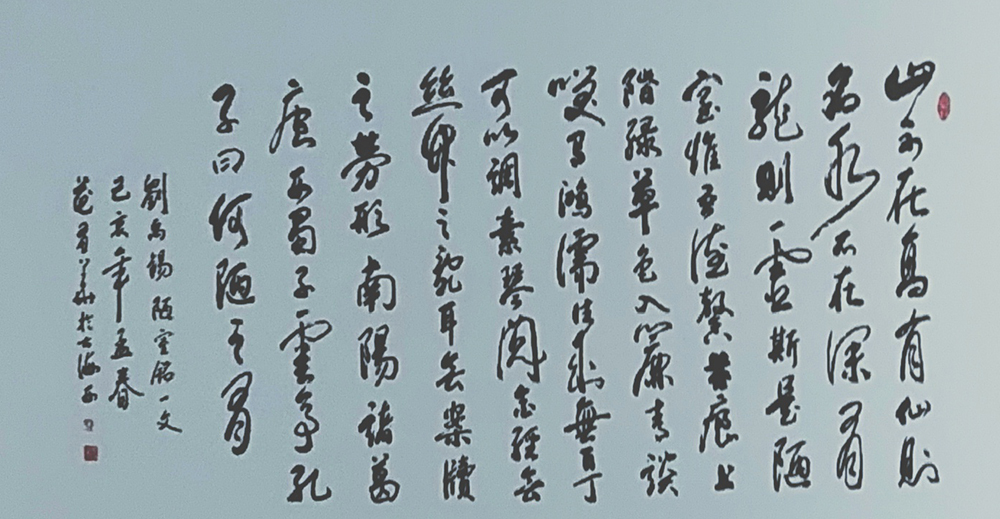 山不在高有仙則
名水不在深有
龍則靈斯是陋
室惟吾德馨苔痕上
階綠草色入簾青談
笑有鴻儒往來無白丁
可以調素琴閱金經無
絲竹之亂耳無案牘
之勞形南陽諸葛
廬西蜀子雲亭孔
子曰何陋之有
劉禹錫陋室銘一文
己亥年孟春
於上海